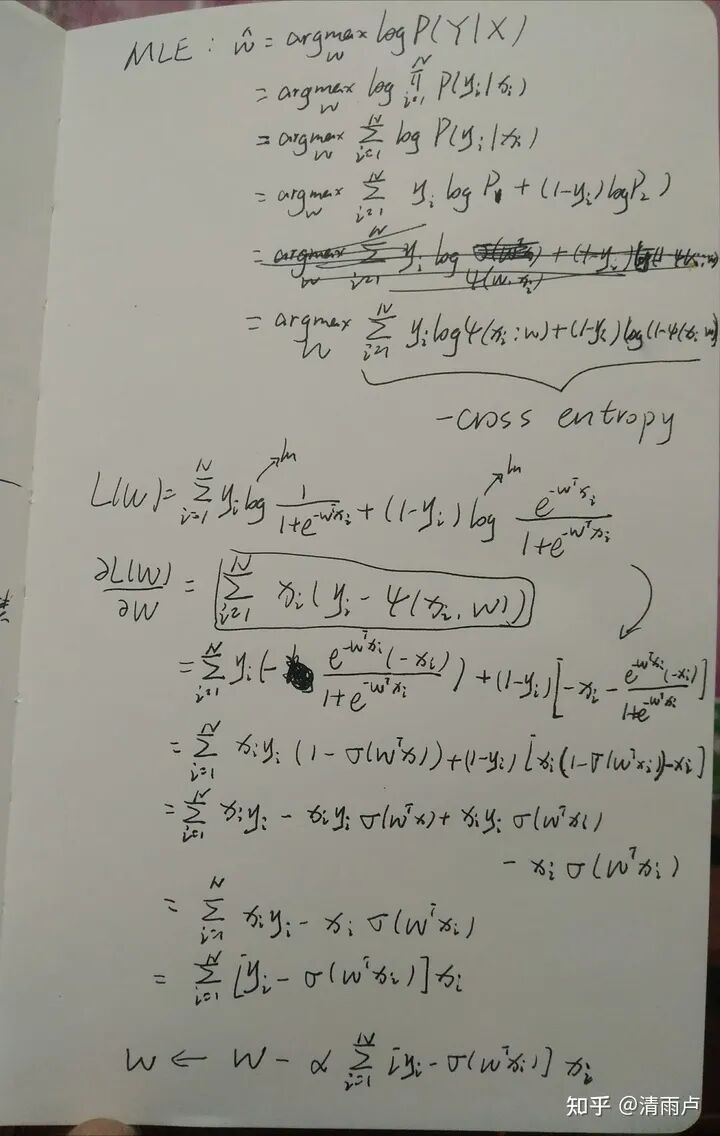 MLE: ŵ = argmax_w log P(Y|X)
= argmax_w log ∏_{i=1}^N P(y_i|x_i)
= argmax_w Σ_{i=1}^N log P(y_i|x_i)
= argmax_w Σ_{i=1}^N y_i log P_1 + (1-y_i) log P_2)
= argmax_w Σ_{i=1}^N y_i log ψ(w, x_i) + (1-y_i)
= argmax_w Σ_{i=1}^N y_i log ψ(x_i; w) + (1-y_i) log(1-ψ(x_i; w)
-cross entropy
ln ln
L(W) = Σ_{i=1}^N y_i log 1/(1+e^{-w^T x_i}) + (1-y_i) log e^{-w^T x_i}/(1+e^{-w^T x_i})
∂L(W)/∂W = Σ_{i=1}^N x_i (y_i - ψ(x_i, w))
= Σ_{i=1}^N y_i (- e^{-w^T x_i}(-x_i)/(1+e^{-w^T x_i})) + (1-y_i) [-x_i - e^{-w^T x_i}(-x_i)/(1+e^{-w^T x_i})]
= Σ_{i=1}^N x_i y_i (1 - σ(w^T x_i)) + (1-y_i) [x_i (1-σ(w^T x_i)) - x_i]
= Σ_{i=1}^N x_i y_i - x_i y_i σ(w^T x) + x_i y_i σ(w^T x_i)
- x_i σ(w^T x_i)
= Σ_{i=1}^N x_i y_i - x_i σ(w^T x_i)
= Σ_{i=1}^N [y_i - σ(w^T x_i)] x_i
W ← W - α Σ_{i=1}^N [y_i - σ(w^T x_i)] x_i
知乎 @清雨卢